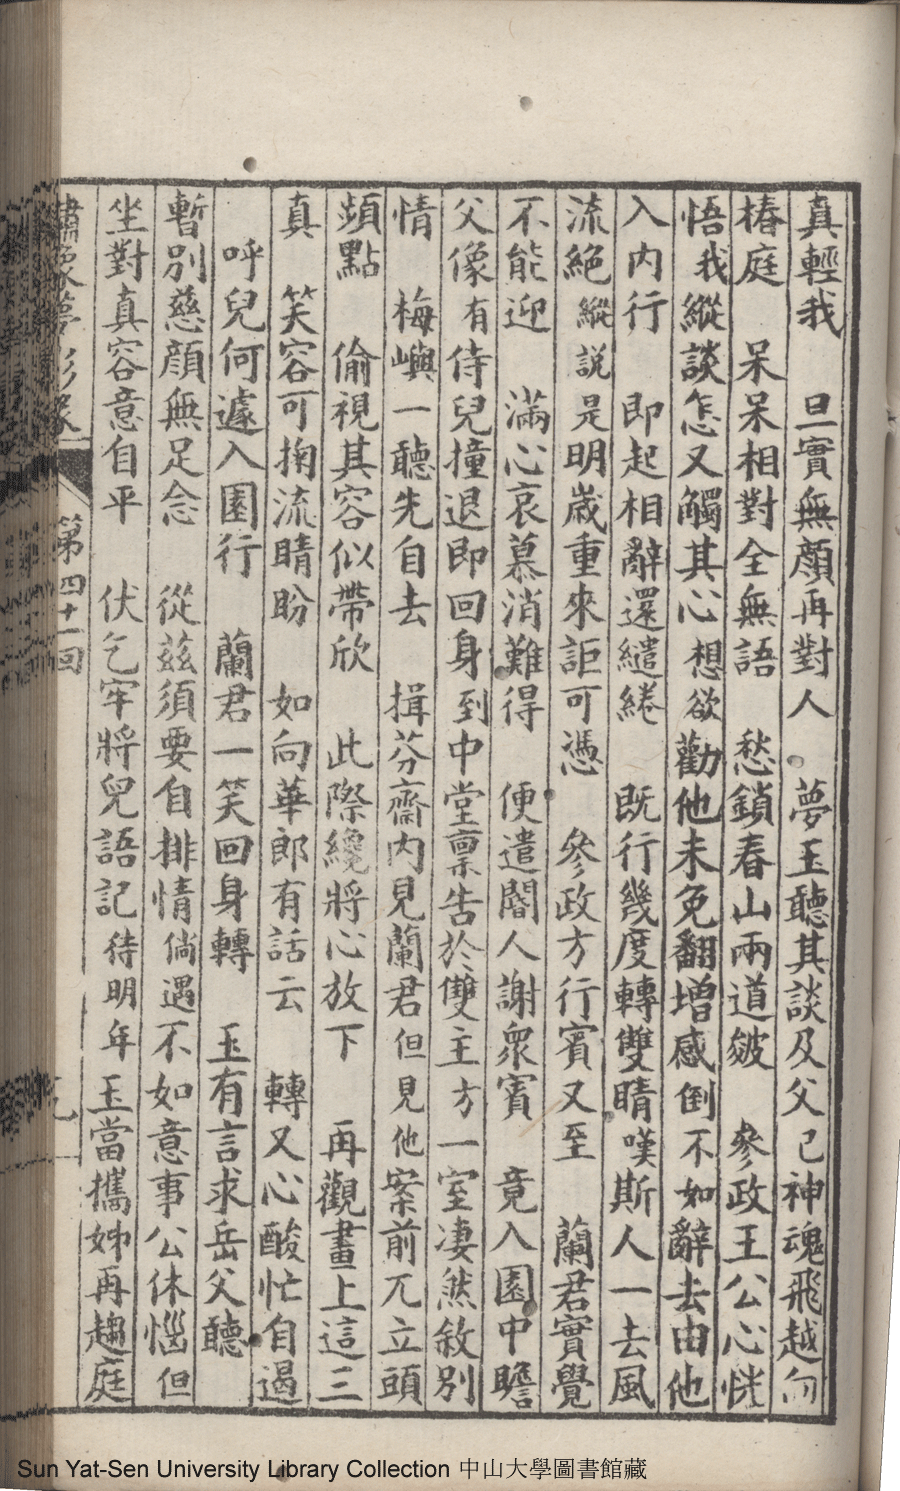 真輕我　旦實無顏再對人　夢玉聽其談及父已神魂飛越向
椿庭　呆呆相對全無語　愁鎖春山兩道皴　參政王公心恍
悟我縱談怎又觸其心想欲勸他未免翻增感倒不如辭去由他
入內行　即起相辭還繾綣　既行幾度轉雙睛嘆斯人一去風
流絕縱説是明歲重來詎可憑　參政方行賓又至　蘭君實覺
不能迎　滿心哀慕消難得　便遣閽人謝衆賓　竟入園中瞻
父像有侍兒撞退即回身到中堂稟告於雙主方一室淒然敘別
情　梅嶼一聽先自去　揖芬齋內見蘭君但見他案前兀立頭
頻點　偷視其容似帶欣　此際纔將心放下　再觀畫上這三
真　笑容可掬流睛盼　如向華郎有話云　轉又心酸忙自遏
呼兒何遽入園行　蘭君一笑回身轉　玉有言求岳父聽
暫別慈顏無足念　從茲須要自排情倘遇不如意事公休惱但
坐對真容意自平　伏乞牢將兒語記待明年玉當攜姊再趨庭
第四十一回
Sun Yat-Sen University Library Collection 中山大學圖書館藏